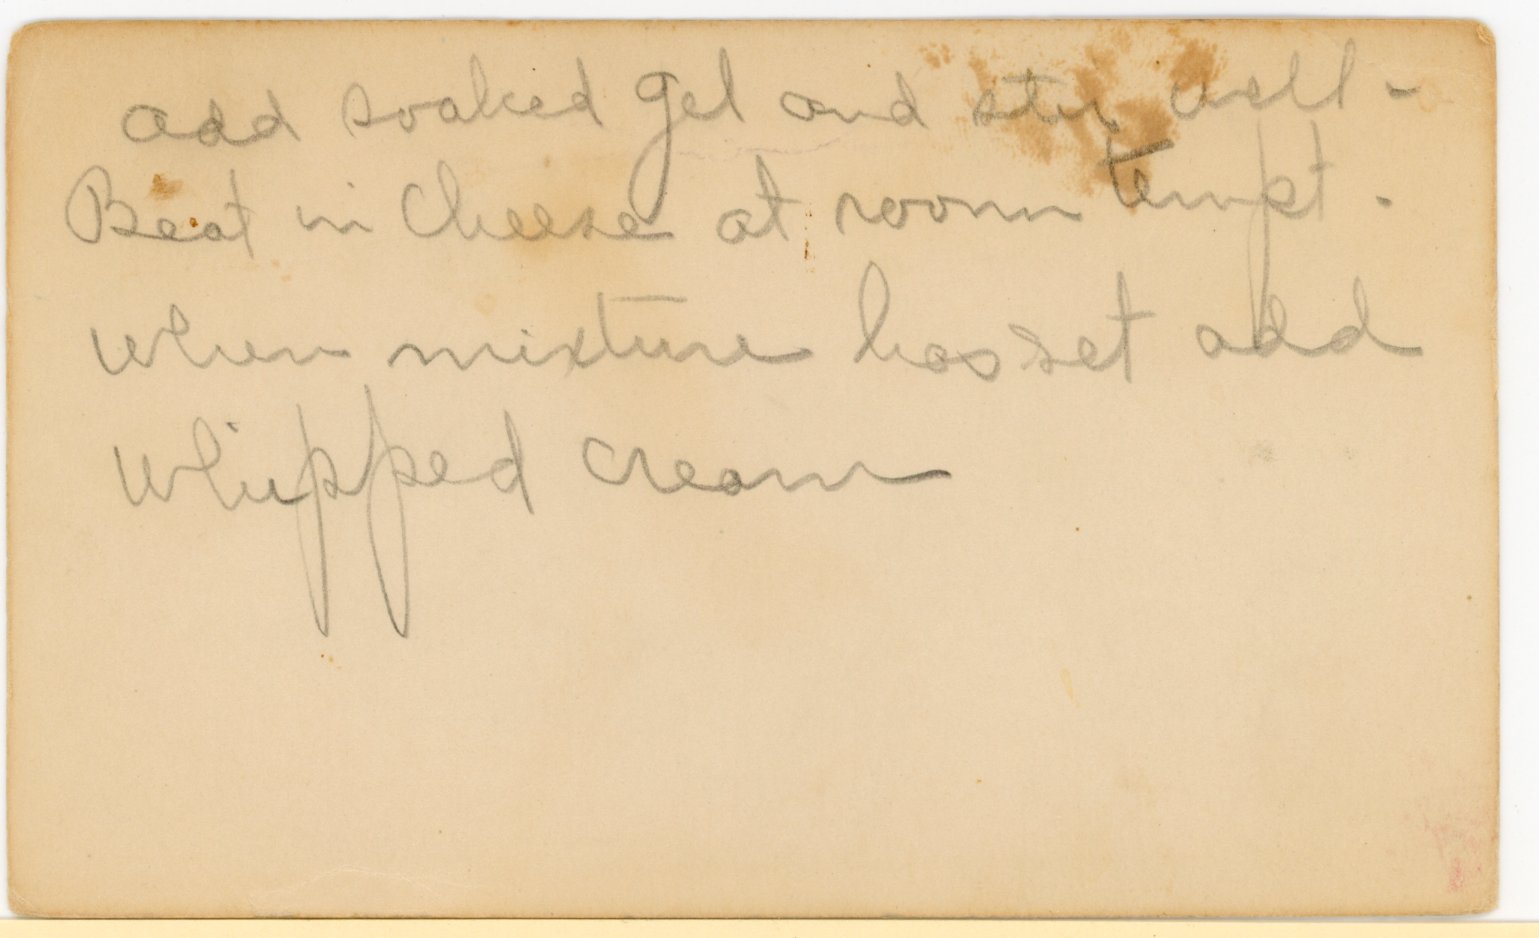 add soaked gel and stir well -
Beat in Cheese at room tempt.
when mixture has set add
whipped cream